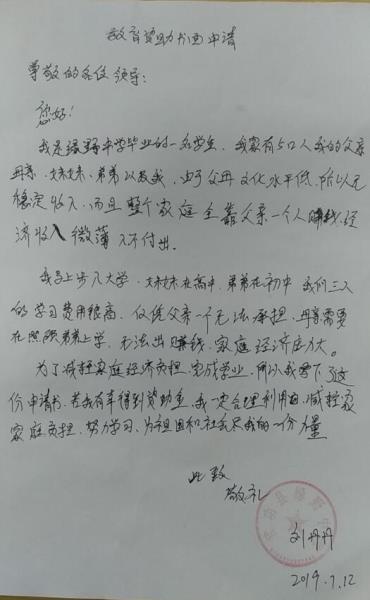 教育资助书面申请
尊敬的各位领导:
您好!
我是绿野中学毕业的一名学生,我家有5口人我的父亲
母亲、妹妹、弟弟以及我,由于父母文化水平低,所以无
稳定收入,而且整个家庭全靠父亲一个人赚钱,经
济收入微薄入不付出。
我马上步入大学,妹妹在高中,弟弟在初中,我们三人
的学习费用很高,仅凭父亲一个无法承担,母亲需要
在照顾弟弟上学,无法出门赚钱,家庭经济压力大。
为了减轻家庭经济负担,完成学业,所以我写下这
份申请书,若我有幸得到资助金,我一定合理利用,减轻家
家庭负担,努力学习,为祖国和社会尽我的一份力量
此致
敬礼
刘丹丹
2019.7.12